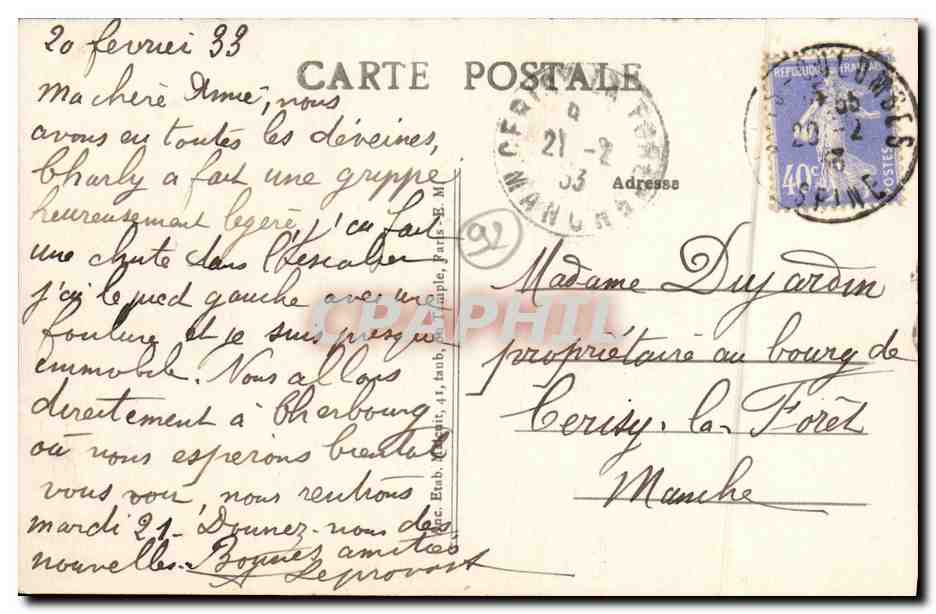 20 fevrier 33
CARTE POSTALE
Ma chère Amie, nous
avons eu toutes les déveines,
Charly a fait une grippe
heureusement legère, j'ai fait
une chute dans l'escalier
j'ai le pied gauche avec une
foulure et je suis presque
immobile. Nous allons
directement à Cherbourg
où nous espérons bientot
vous voir, nous rentrons
mardi 21 - Donnez-nous des
nouvelles. Bonnes amitiés
Leprovost
Anc. Etab. Malcuit, 41, faub. du Temple, Paris - E. M.
92
21 -2
33
MANCHE
REPUBLIQUE FRANÇAISE
40c
POSTES
20 -2
33
SEINE
Adresse
Madame Dujardin
propriétaire au bourg de
Cerisy-la-Forêt
Manche
CPAPHIL